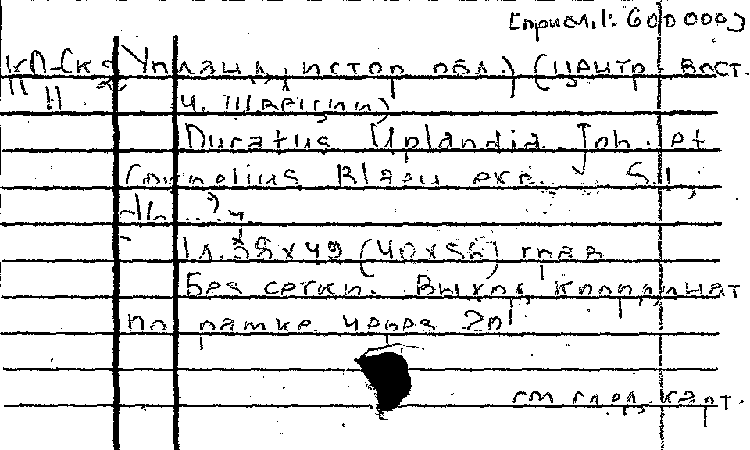 [прибл. 1: 600 000]
КП-Ск2 Упланд, истор. обл., (центр. вост.
11 11 ч. Швеции)
Ducatus Uplandia. Joh. et
Cornelius Blaeu exc. S.l.,
1л. 38х49 (40х56) грав
Без сетки. Выход. координат
по рамке через 20'
см след. карт.